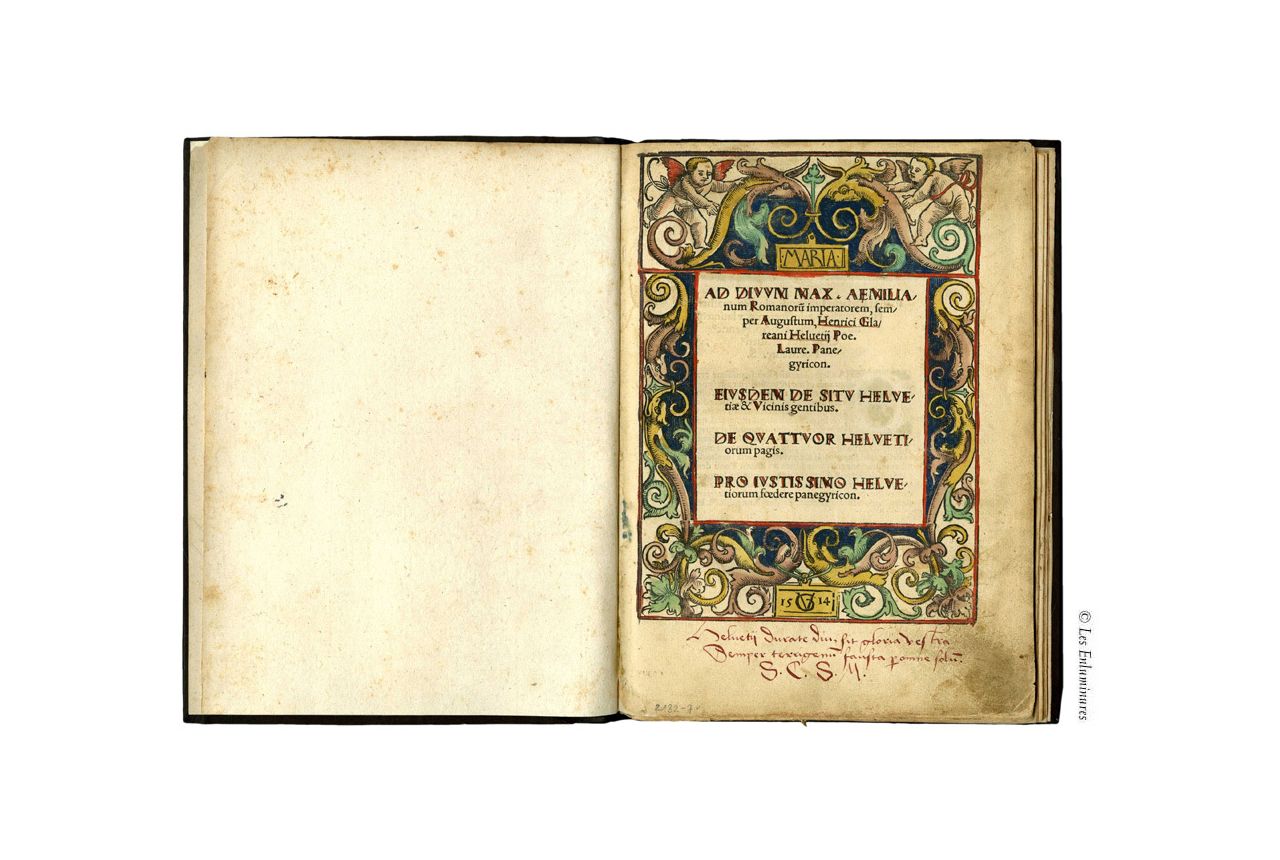 ·MARIA·
AD DIVVM MAX. AEMILIA-
num Romanorū imperatorem, sem-
per Augustum, Henrici Gla-
reani Heluetij Poe.
Laure. Pane-
gyricon.
EIVSDEM DE SITV HELVE-
tiæ & Vicinis gentibus.
DE QVATTVOR HELVETI-
orum pagis.
PRO IVSTISSIMO HELVE-
tiorum fœdere panegyricon.
15 VG 14
Heluetij durate diu, sit gloria vestra
Semper terrigenum fausta omne solū.
S. C. S. M.
2182-7
© Les Enluminures